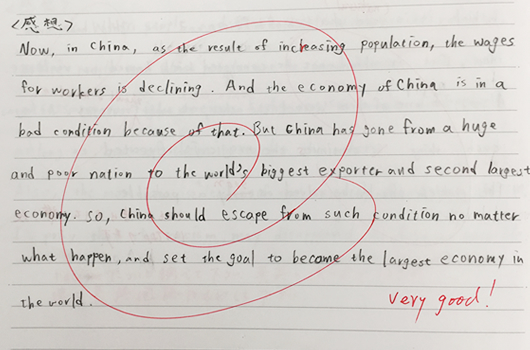 <感想>
Now, in China, as the result of increasing population, the wages
for workers is declining. And the economy of China is in a
bad condition because of that. But China has gone from a huge
and poor nation to the world's biggest exporter and second largest
economy. So, China should escape from such condition no matter
what happen, and set the goal to become the largest economy in
the world.
Very good!